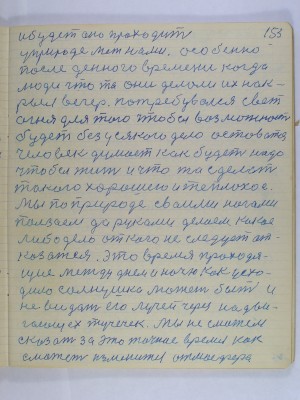 и будет оно проходить 153
у природе меж нами, особенно
после денного времени когда
люди что то они делали их нак-
рыл вечер. потребувался свет
огня для того чтобы возможность
будет без усякого дела оставатся
человек думает как будет надо
чтобы жить и что то сделать
такого хорошего и теплохое.
Мы по природе своими ногами
ползаем да руками делаем какое
либо дело от кого не следует от-
казатся. Это время проходя-
щие между днем и ночю как ухо-
дило солнушко может быть и
не видать его лучей через надви-
гающех тучечек. Мы не сможем
сказать за это точное время как
сможет изменится атмосфера